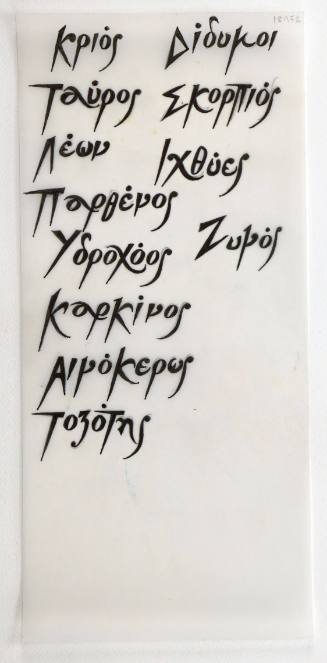 Κριός Δίδυμοι
Ταύρος Σκορπιός
Λέων Ιχθύες
Παρθένος
Υδροχόος Ζυγός
Καρκίνος
Αιγόκερως
Τοξότης